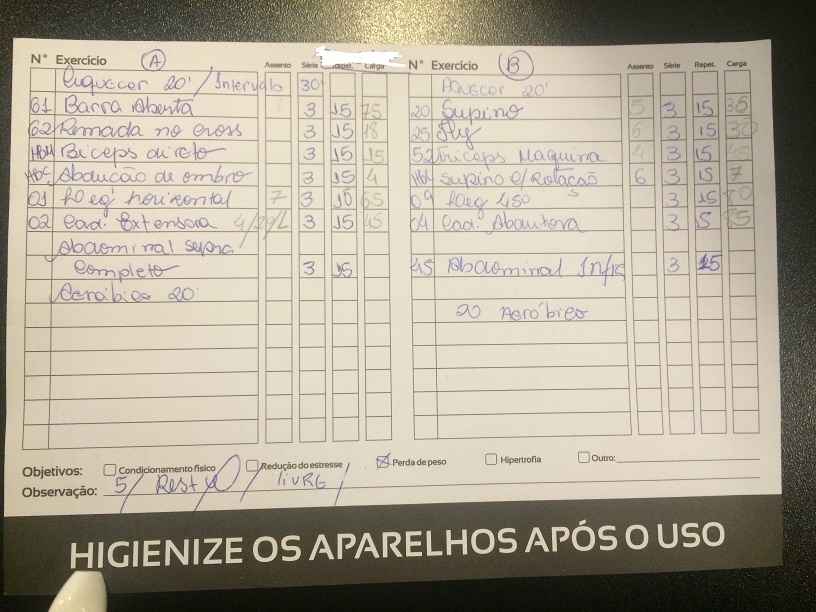 N° Exercício A Assento Série Repet. Carga
Aquecer 20' / Intervalo 30
61 Barra Aberta 3 15 75
62 Remada no cross 3 15 18
HBM Biceps direto 3 15 15
HBC Abdução de ombro 3 15 4
01 Leg horizontal 7 3 15 65
02 Cad. Extensora 4/29/L 3 15 45
Abdominal supra
Completo 3 15
Aeróbico 20'
N° Exercício B Assento Série Repet. Carga
Aquecer 20'
20 Supino 5 3 15 35
25 Fly 6 3 15 30
52 Triceps Maquina 4 3 15
HBL Supino c/ Rotação 6 3 15 7
09 Leg 45° 3 15
04 Cad. Abdutora 3 15
45 Abdominal Infra 3 15
20 Aeróbico
Objetivos: Condicionamento físico Redução do estresse Perda de peso Hipertrofia Outro:
Observação: 5/ / livre/
HIGIENIZE OS APARELHOS APÓS O USO